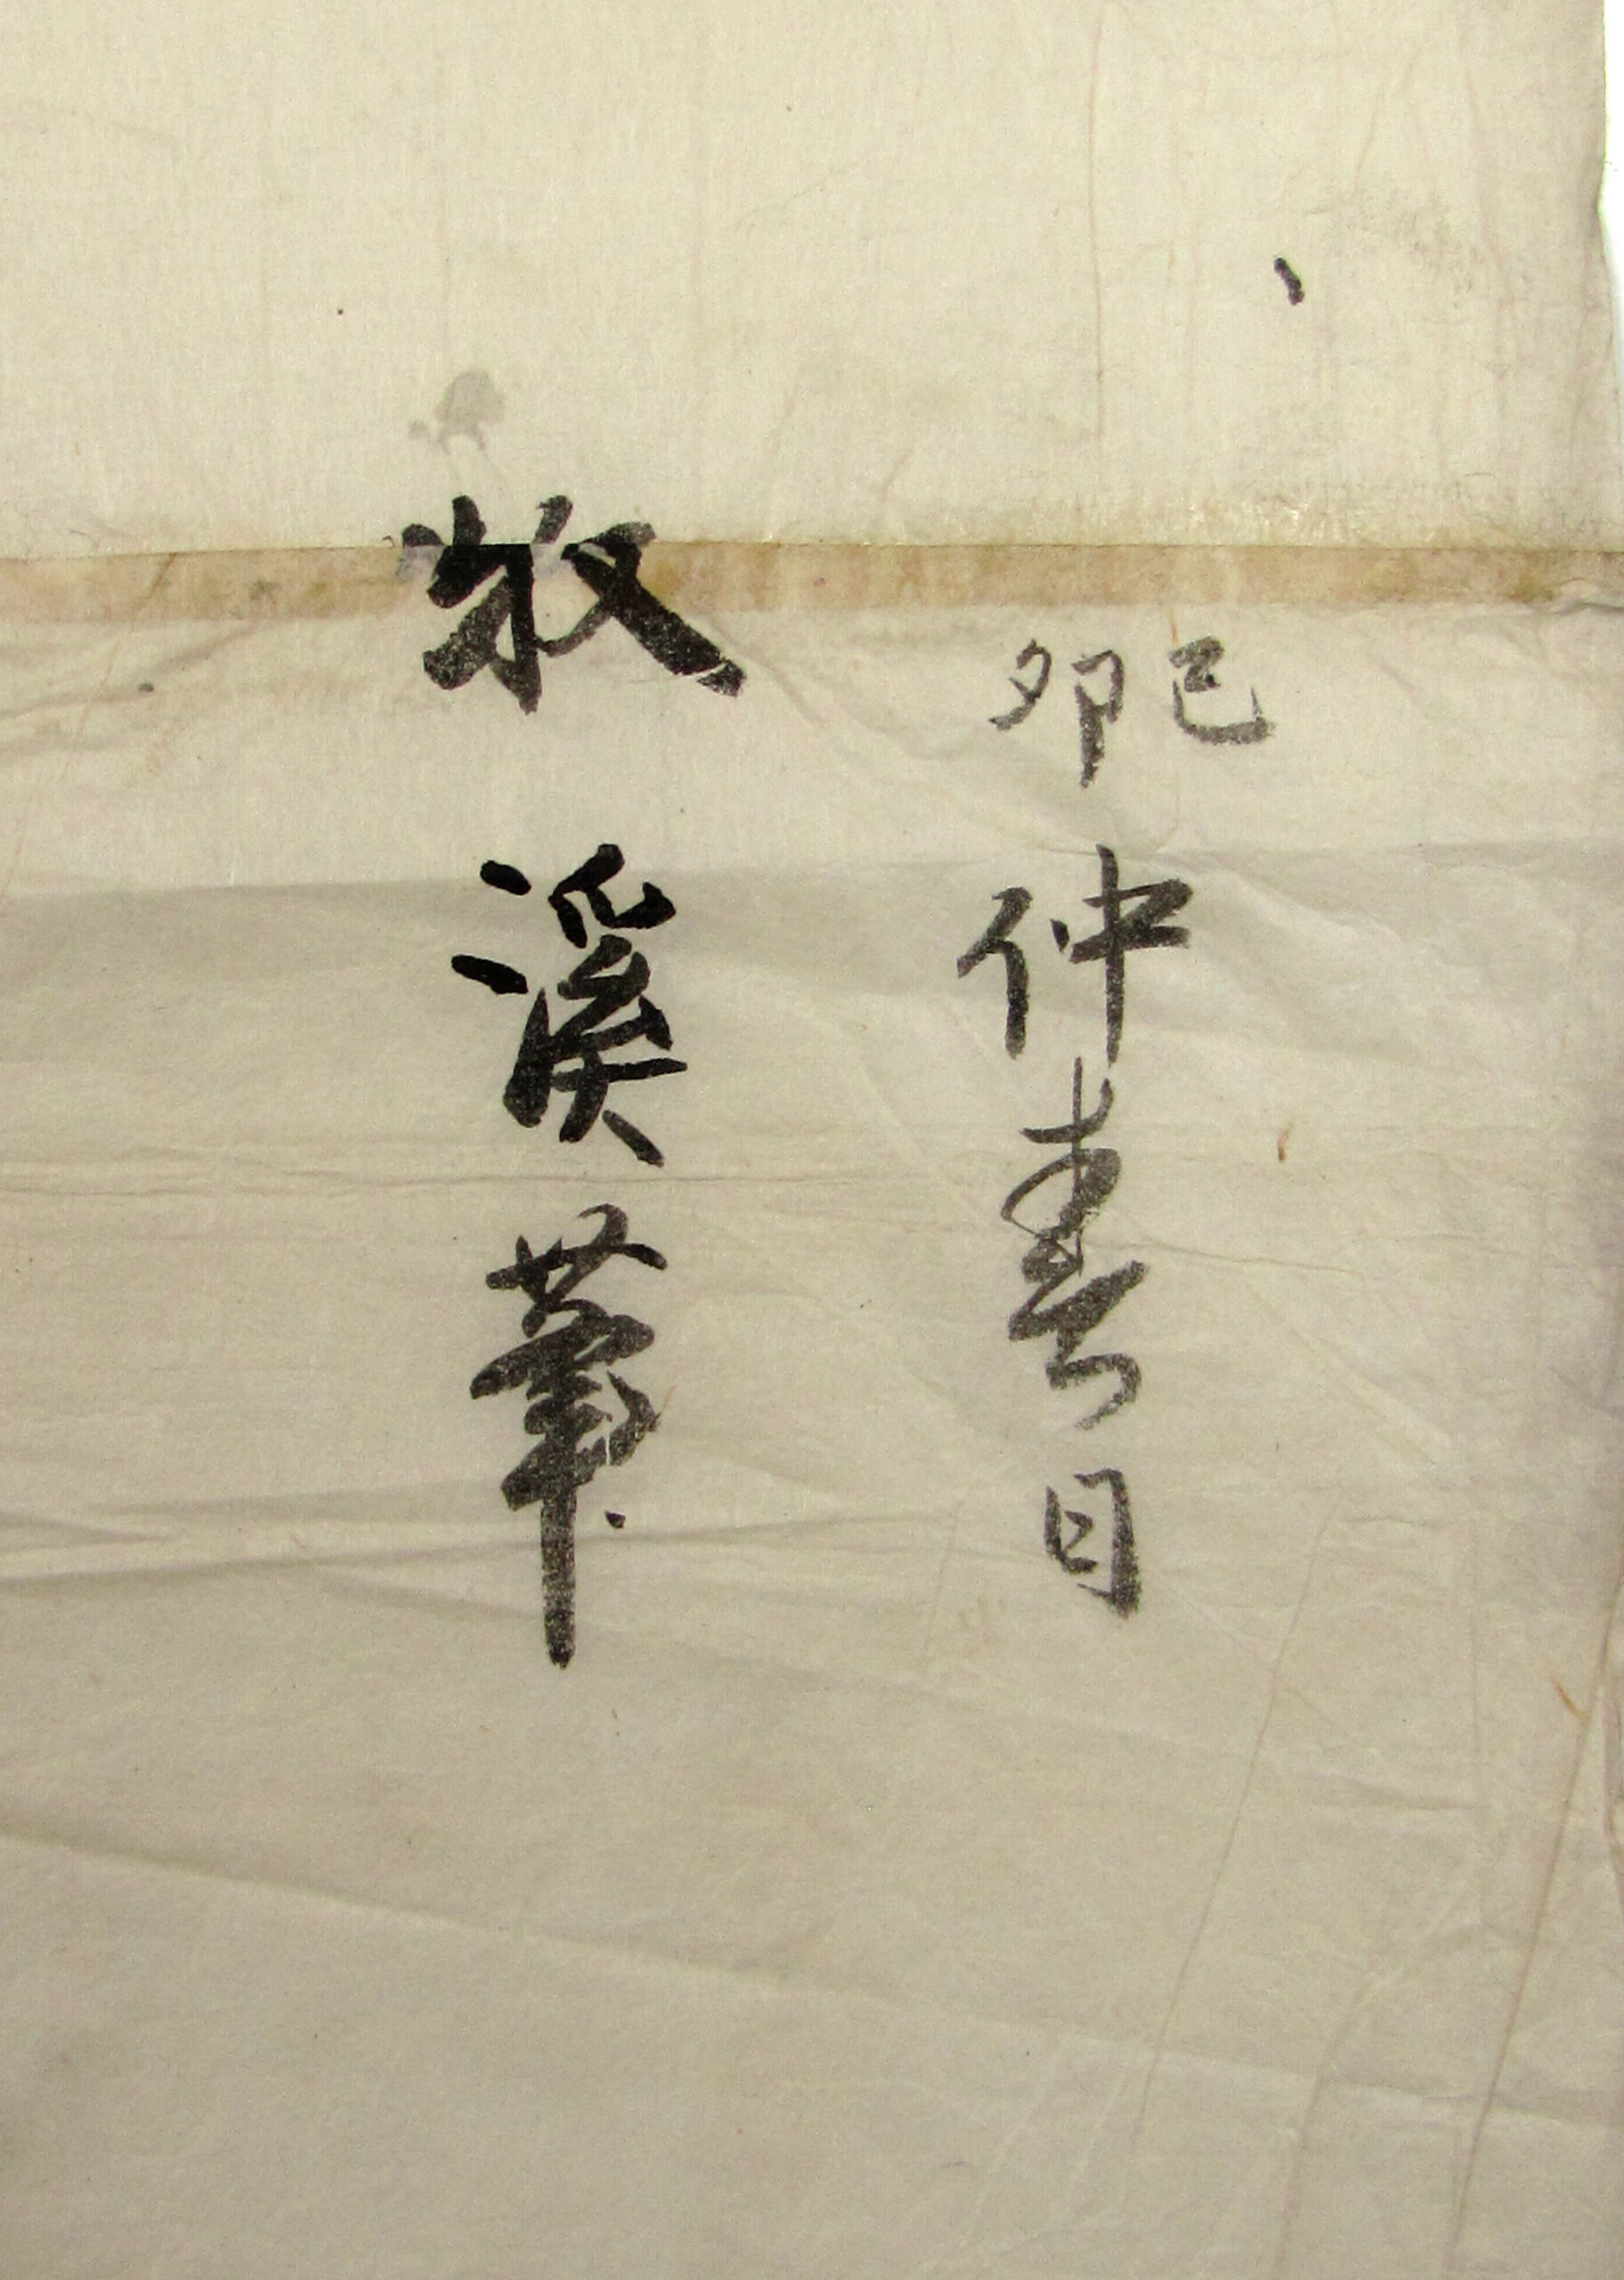 己卯仲春日
牧溪筆